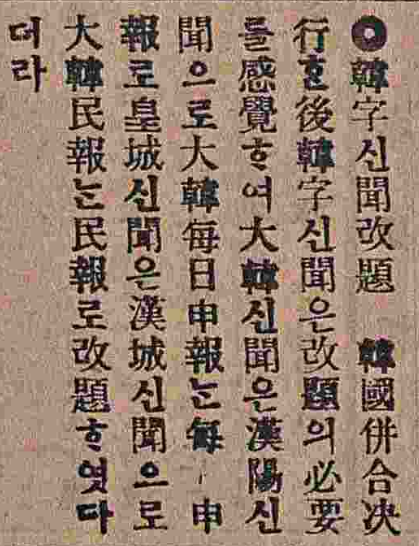 ◉韓字신聞改題 韓國併合决
行ᄒᆞᆫ後韓字신聞은改題의必要
를感覺ᄒᆞ여大韓신聞은漢陽신
聞으로大韓每日申報ᄂᆞᆫ每 申
報로皇城신聞은漢城신聞으로
大韓民報ᄂᆞᆫ民報로改題ᄒᆞ엿다
더라